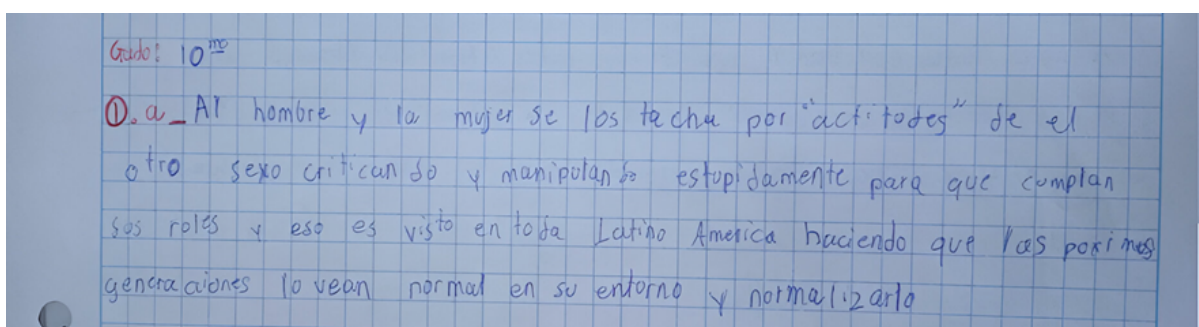 Grado: 10mo
①. a_ Al hombre y la mujer se los tacha por "actitudes" de el
otro sexo criticando y manipulando estupidamente para que cumplan
sus roles y eso es visto en toda Latino America haciendo que las poximas
generaciones lo vean normal en su entorno y normalizarlo